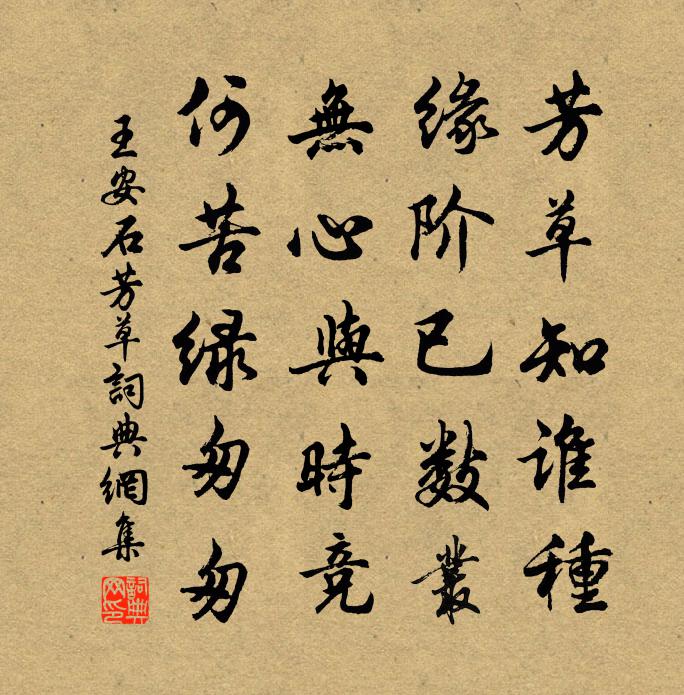 芳草知谁種
缘阶已数叢
無心與時竞
何苦绿匆匆
王安石芳草詞典網集
詞典网印